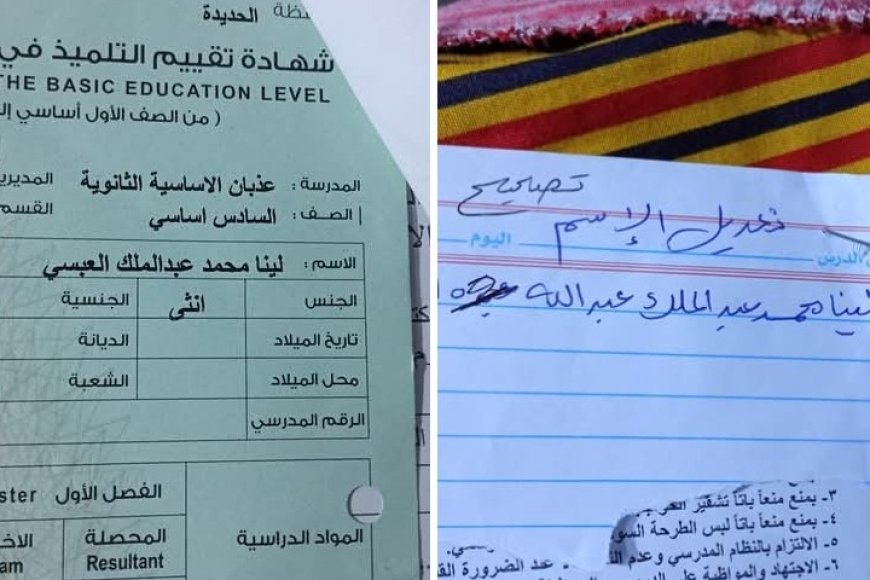 ظة الحديدة
شهادة تقييم التلميذ في
THE BASIC EDUCATION LEVEL
( من الصف الأول أساسي إل
المدرسة : عذبان الاساسية الثانوية
المديري
الصف : السادس اساسي
القسم
الاسم : لينا محمد عبدالملك العبسي
الجنس انثى الجنسية
تاريخ الميلاد الديانة
محل الميلاد الشعبة
الرقم المدرسي
الفصل الأول ster
المواد الدراسية
المحصلة
Resultant
الاخ
am
تصحيح
تعديل الإسم
الدرس
اليوم
لينا محمد عبد الملك عبد الله
٣- يمنع منعاً باتاً تشقير
٤- يمنع منعاً باتاً لبس الطرحة السو
٥- الالتزام بالنظام المدرسي وعدم
عند الضرورة الق
٦- الاجتهاد والمواظبة على